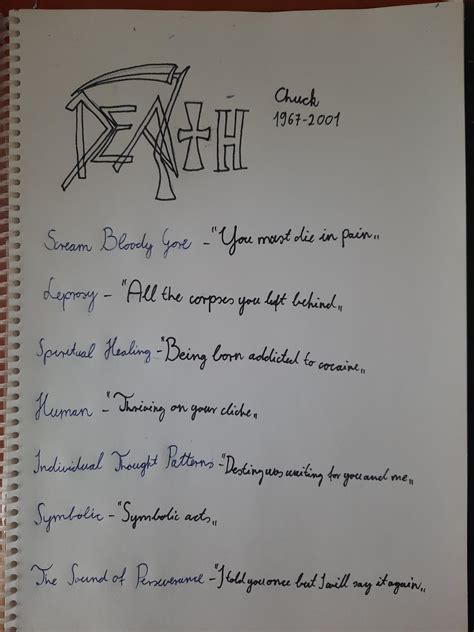 DEATH
Chuck
1967-2001
Scream Bloody Gore - "You must die in pain„
Leprosy - "All the corpses you left behind„
Spiritual Healing - "Being born addicted to cocaine„
Human - "Thriving on your cliche„
Individual Thought Patterns - "Destiny was waiting for you and me„
Symbolic - "Symbolic acts„
The Sound of Perseverance - "I told you once but I will say it again„